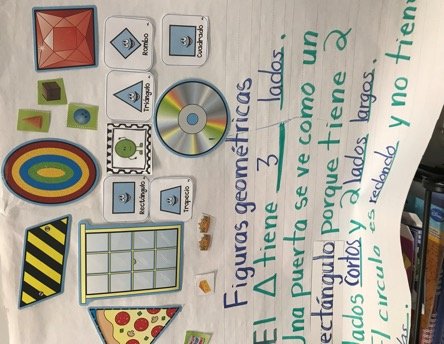 Rombo
Cuadrado
Triángulo
Rectángulo
Trapecio
Figuras geométricas
El △ tiene 3 lados.
Una puerta se ve como un
rectángulo porque tiene 2
lados cortos y 2 lados largos.
El círculo es redondo y no